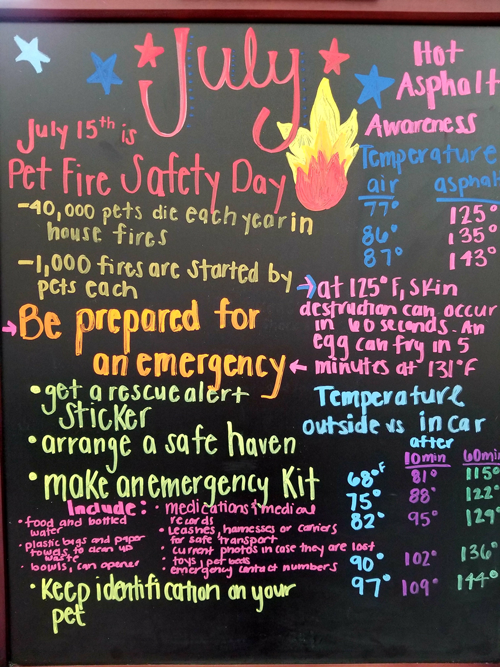 July
July 15th is
Pet Fire Safety Day
-40,000 pets die each year in
house fires
-1,000 fires are started by
pets each
→Be prepared for
an emergency
•get a rescue alert
sticker
•arrange a safe haven
•make an emergency kit
Include:
•food and bottled
water
•plastic bags and paper
towels to clean up
waste
•bowls, can opener
•medications + medical
records
•Leashes, harnesses or carriers
for safe transport
•current photos in case they are lost
•toys, pet beds
•emergency contact numbers
•Keep identification on your
pet
Hot
Asphalt
Awareness
Temperature
air asphalt
77° 125°
86° 135°
87° 143°
→at 125°F, skin
destruction can occur
in 60 seconds. An
egg can fry in 5
← minutes at 131°F
Temperature
outside vs in car
after
10min 60min
68°F 81° 115°
75° 88° 122°
82° 95° 129°
90° 102° 136°
97° 109° 144°